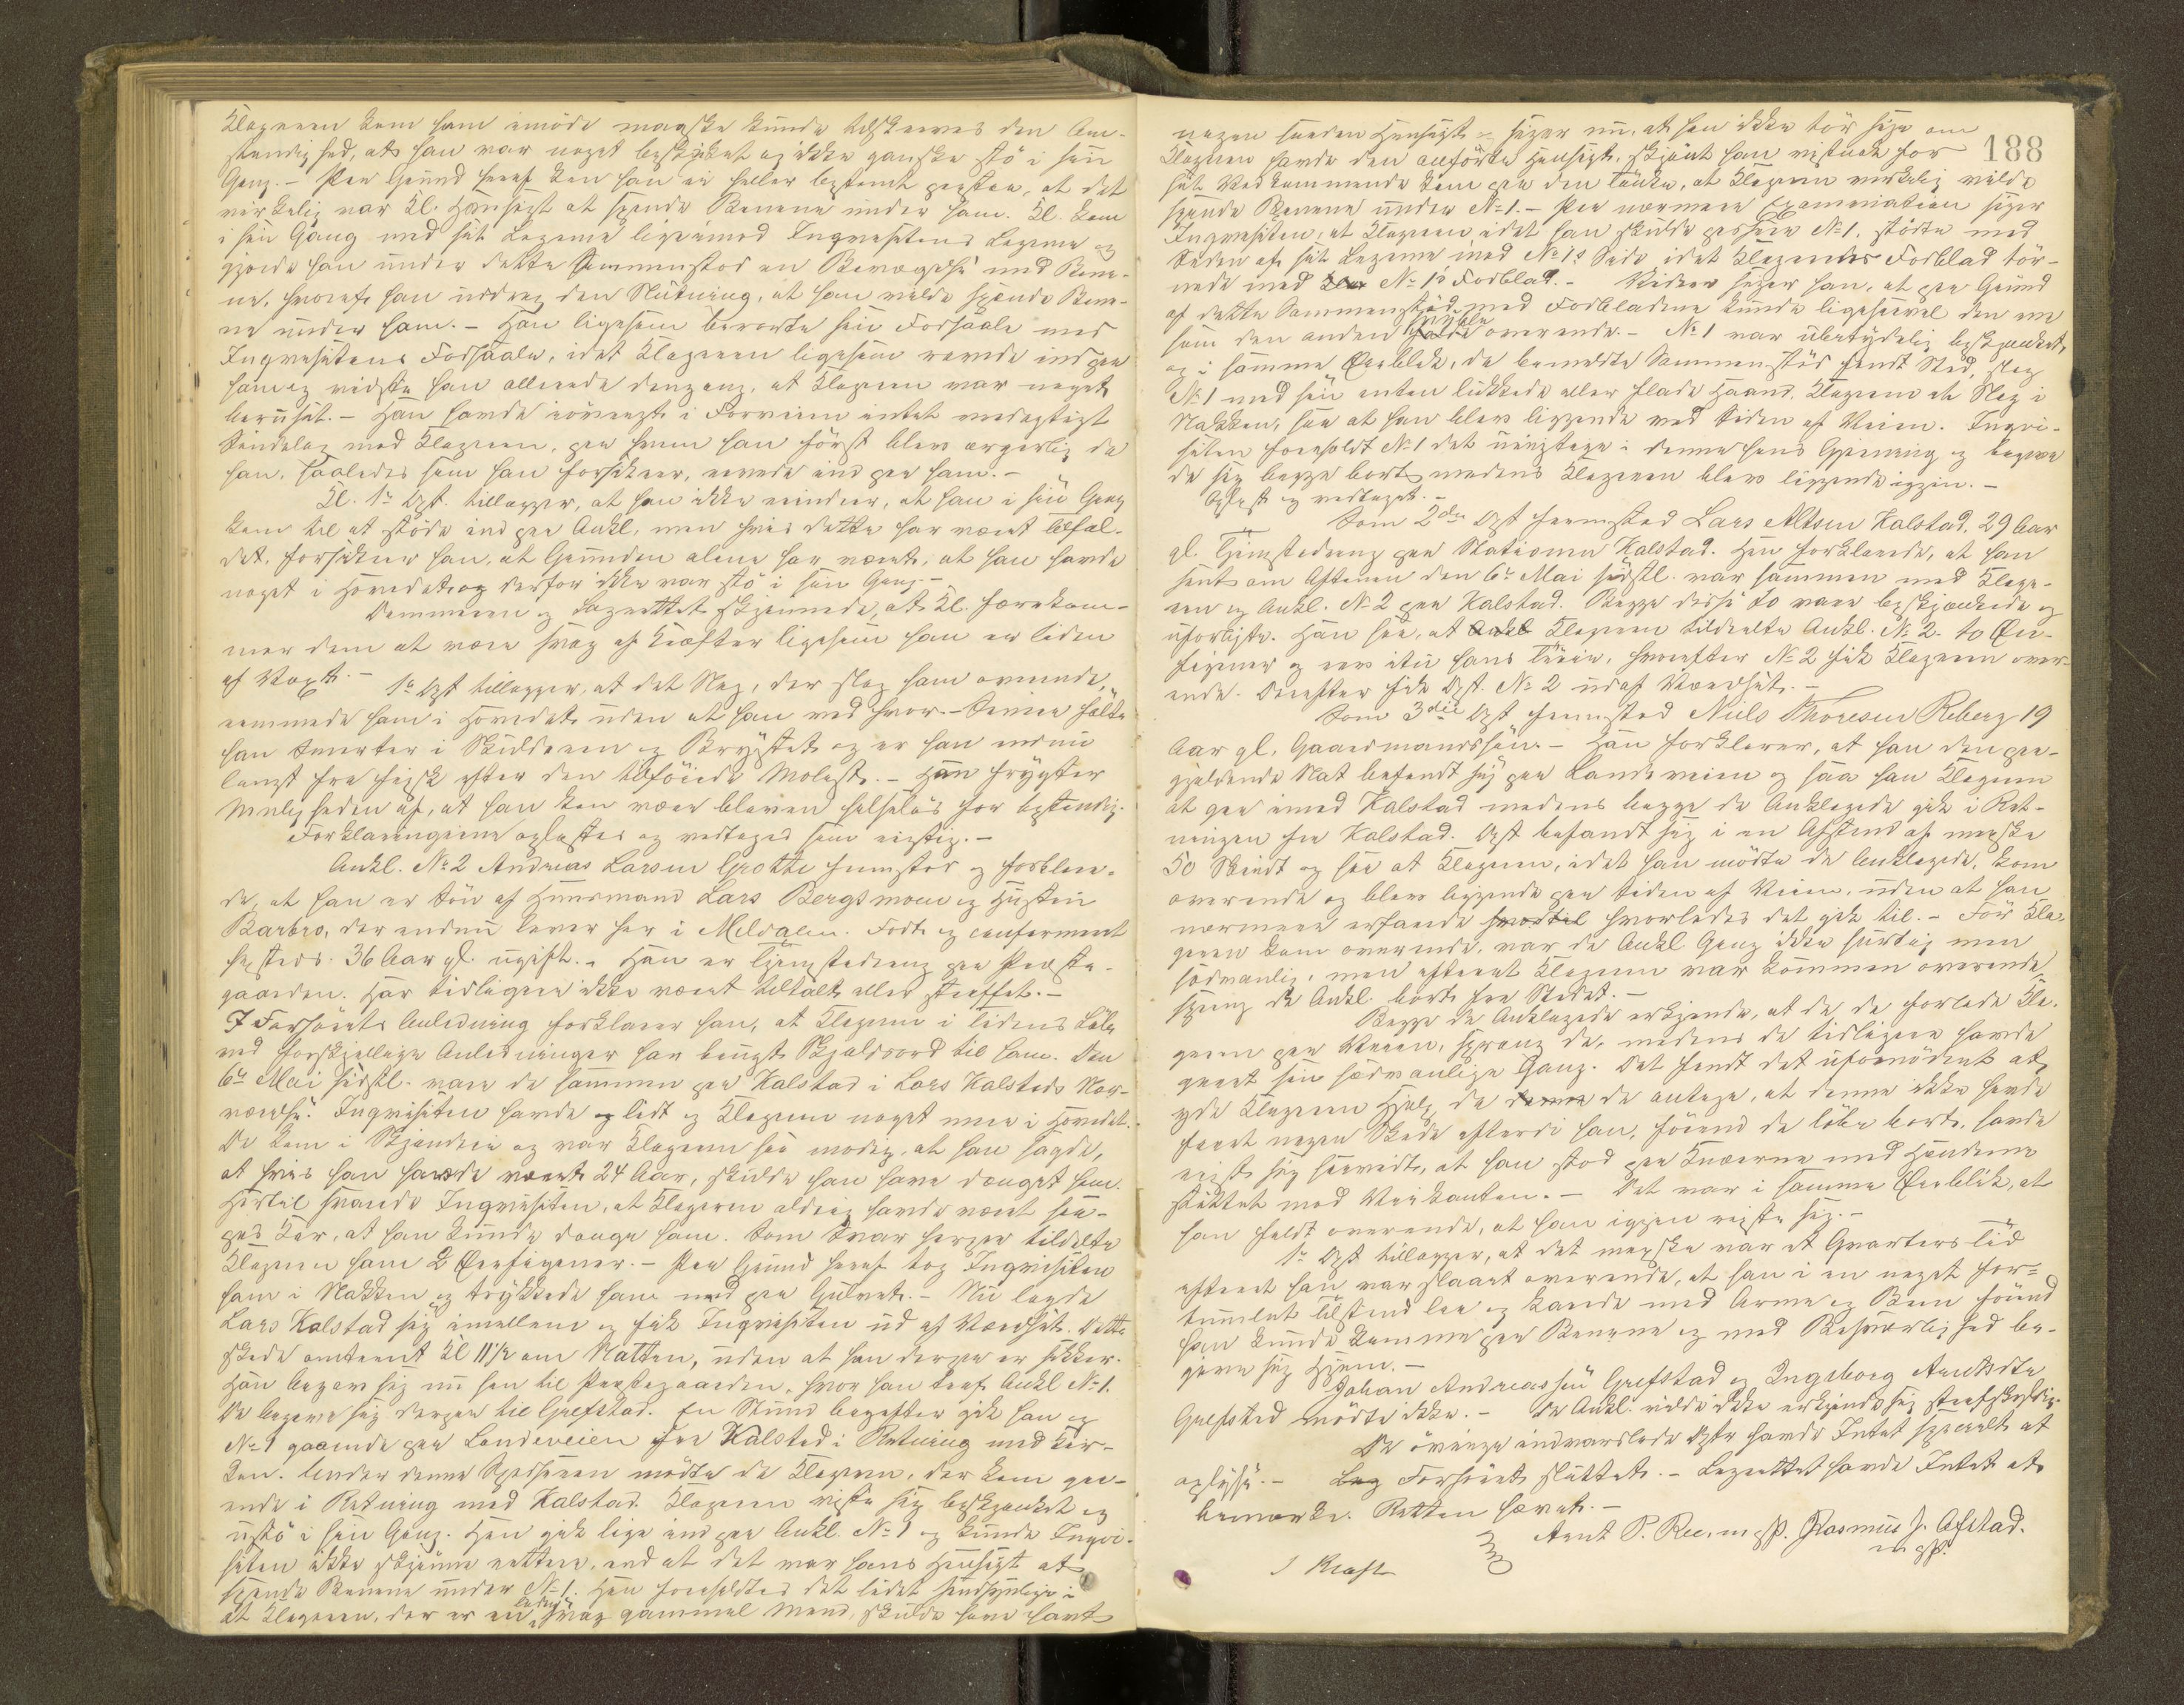 Klageren kom ham imøde maaske kunde tilskrives den Om-
stændighed, at han var noget beskjænket og ikke ganske stø i sin
Gang.- Paa Grund heraf kan han ei heller bestemt paastaa, at det
virkelig var Kl. Hensigt at spænde Benene under ham. Kl. kom
i sin Gang med sit Legeme ligeimod Inqvisitens Legeme og
gjorde han under dette Sammenstød en Bevægelse med Bene-
ne, hvoraf han uddrog den Slutning, at han vilde spænde Bene-
ne under ham. - Han ligesom berørte sin Fodsaale med
Inqvisitens Fodsaale, idet Klageren ligesom ravede ind paa
ham og vidste han allerede dengang, at Klageren var noget
beruset. - Han havde iøvrigt i Forveien intet uvedagtigt
Sindelag mod Klageren, paa hvem han først blev ærgerlig da
han, saaledes som han forsikrer, ravede ind paa ham. -
Kl. 1ste Dpt. tillægger, at han ikke erindrer, at han i sin Gang
kom til at støde ind paa Ankl., men hvis dette har været Tilfæl-
det, forsikrer han, at Grunden alene har været, at han havde
noget i Hovedet og derfor ikke var stø i sin Gang. -
Dommeren og Lagrettet skjønnede, at Kl. forekom-
mer dem at være svag af Kræfter ligesom han er liden
af Væxt. -
1ste Dpt tillægger, at det Slag, der slog ham overende,
rammede ham i Hovedet uden at han ved hvor. - Senere følte
han Smerter i Skulderen og Brystet og er han endnu
langt fra frisk efter den tilføiede Molest. - Han frygter
Muligheden af, at han kan være bleven helseløs for bestandig.
Forklaringerne oplæstes og vedtoges som rigtig. -
Ankl. No 2 Andreas Larsen Grøtte fremstod og forklare-
de, at han er Søn af Huusmand Lars Bergsmoen og Hustru
Barbro, der endnu lever her i Meldalen. Født og confirmeret
sammesteds. 36 Aar gl. ugift. - Han er Tjenstedreng paa Præste-
gaarden. Har tidligere ikke været tiltalt eller straffet. -
I Forhørets Anledning forklarer han, at Klageren i Tidens Løb
ved forskjellige Anledninger har brugt Skjældsord til ham. Den
6te Mai sidstl. vare de sammen paa Kalstad i Lars Kalstads Nær-
værelse. Inqvisiten havde og lidt og Klageren noget mere i Hovedet.
De kom i Skjænderi og var Klageren saa modig, at han sagde,
at hvis han havde været 24 Aar, skulde han have dænget ham.
Hertil svarede Inqvisiten, at Klageren aldrig havde været saa-
pas Kar, at han kunde dænge ham. Som Svar herpaa tildelte
Klageren ham 2 Ørefigener. - Paa Grund heraf tog Inqvisiten
ham i Nakken og trykkede ham ned paa Gulvet. - Nu lagde
Lars Kalstad sig imellem og fik Inqvisiten ud af Værelset. Dette
skede omtrent Kl 11½ om Natten, uden at han derpaa er sikker.
Han begav sig nu hen til Præstegaarden, hvor han traf Ankl No 1.
De begave sig derpaa til Grefstad. En Stund derefter gik han og
No 1 gaaende paa Landeveien fra Kalstad i Retning mod Kir-
ken. Under denne Spadseren mødte de Klageren, der kom gaa-
ende i Retning mod Kalstad. Klageren viste sig beskjænket og
ustø i sin Gang. Han gik lige ind paa Ankl. No 1 og kunde Inqvi-
siten ikke skjønne rettere, end at det var hans Hensigt at
spænde Benene under No 1. Han foreholdtes det lidet sandsynlige i
at Klageren, der er en liden svag gammel Mand, skulde have havt
188
nogen saadan Hensigt og siger nu, at han ikke tør sige om
Klageren havde den anførte Hensigt, skjønt han vistnok for
sit Vedkommende kom paa den Tanke, at Klageren virkelig vilde
spænde Benene under No 1. - Paa nærmere Examination siger
Inqvisiten, at Klageren idet han skulde passere No 1, stødte med
Siden af sit Legeme mod No 1s Side idet Klagerens Fodblad tør-
nede mod No 1s Fodblad. - Videre siger han, at paa Grund
af dette Sammenstød med Fodbladene kunde ligesaavel den ene
som den anden snuble overende. - No 1 var ubetydelig beskjænket,
og i samme Øieblik, da bemeldte Sammenstød fandt Sted, slog
No 1 med sin enten lukkede eller flade Haand, Klageren et Slag i
Nakken, saa at han blev liggende ved Siden af Veien. Inqvi-
siten foreholdt No 1 det urigtige i denne hans Gjerning og begave
de sig begge bort medens Klageren blev liggende igjen. -
Oplæst og vedtaget. -
Som 2den Dpt fremstod Lars Altsen Kalstad, 29 Aar
gl. Tjenstedreng paa Stationen Kalstad. Han forklarede, at han
sent om Aftenen den 6te Mai sidstl. var sammen med Klage-
ren og Ankl. No 2 paa Kalstad. Begge disse to vare beskjænkede og
uforligte. Han saa, at Klageren tildelte Ankl. No 2. to Øre-
figener og rev itu hans Trøie, hvorefter No 2 fik Klageren over-
ende. Derefter fik Dpt. No 2 ud af Værelset. -
Som 3die Dpt fremstod Niels Thoresen Reberg 19
Aar gl. Gaardmandssøn. - Han forklarer, at han den paa-
gjældende Nat befandt sig paa Landeveien og saa han Klageren
at gaa imod Kalstad medens begge de Anklagede gik i Ret-
ningen fra Kalstad. Dpt befandt sig i en Afstand af maaske
50 Skridt og saa at Klageren, idet han mødte de Anklagede, kom
overende og blev liggende paa Siden af Veien, uden at han
nærmere erfarede hvorledes det gik til. - Før Kla-
geren kom overende, var de Ankl Gang ikke hurtig men
sædvanlig, men efterat Klageren var kommen overende,
sprang de Ankl. bort fra Stedet. -
Begge de Anklagede erkjende, at de, da de forlode Kla-
geren paa Veien, sprang de, medens de tidligere havde
gaaet sin sædvanlige Gang. Det fandt det ufornødent at
yde Klageren Hjælp da de antoge, at denne ikke havde
faaet nogen Skade efterdi han, førend de løbe bort, havde
reist sig saavidt, at han stod paa Knæerne med Hænderne
støttet mod Veikanten. - Det var i samme Øieblik, at
han faldt overende, at han igjen reiste sig. -
1ste Dpt tillægger, at det maaske var et Qvarters Tid
efterat han var slaaet overende, at han i en noget for-
tumlet Tilstand laa og kavede med Arme og Ben førend
han kunde komme paa Benene og med Besværlighed be-
gave sig Hjem. -
Johan Andreassen Grefstad og Ingeborg Arntsdtr
Grefstad mødte ikke. - De Ankl. vilde ikke erkjende sig strafskyldig.
De øvrige indvarslede Dptr havde Intet specielt at
oplyse. - Forhøret sluttet. - Lagrettet havde Intet at
bemærke. Retten hævet. -
Arnt P. Ree. m.p.P. Rasmus J. Afstad.
m.p.P.
I Kraft